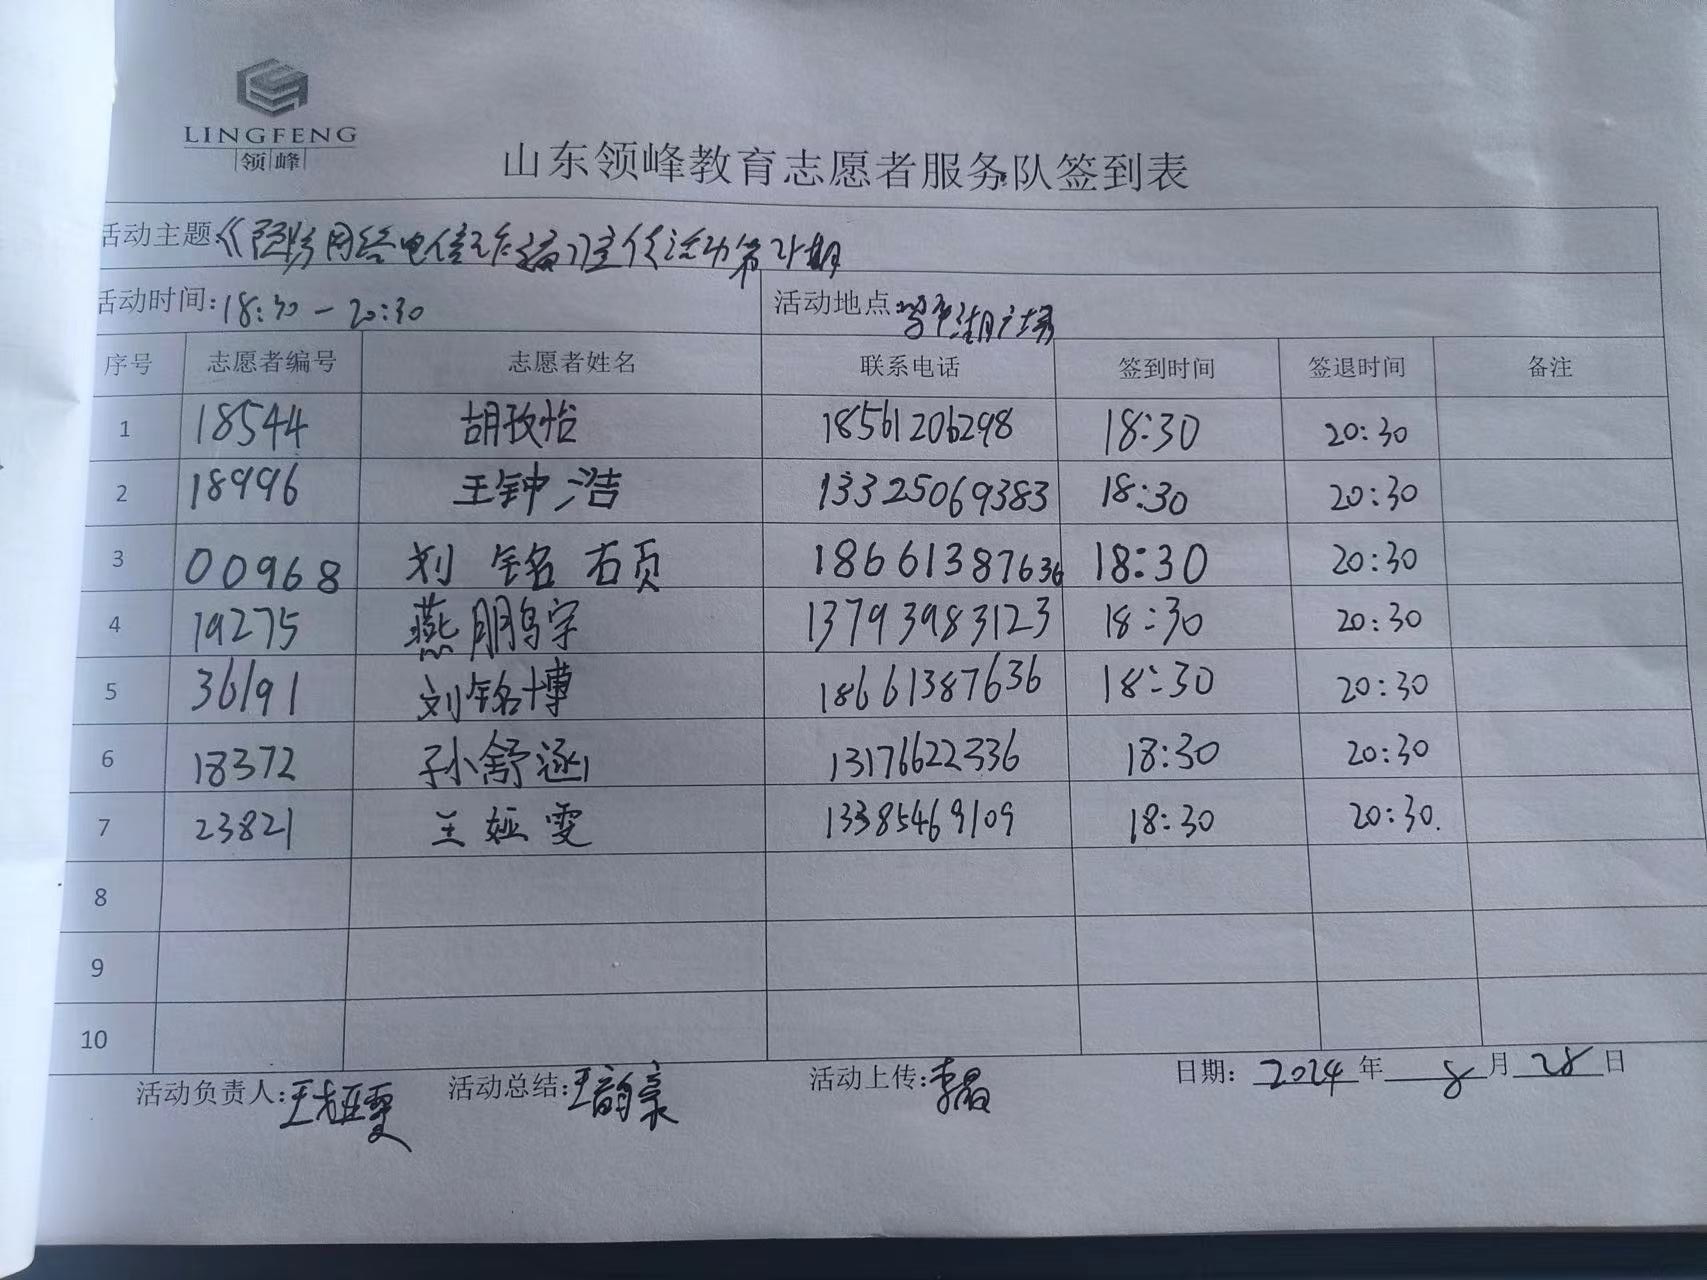 LINGFENG
领峰
山东领峰教育志愿者服务队签到表
活动主题:《预防网络电信诈骗》宣传活动第 期
活动时间:18:30-20:30 活动地点: 湖广场
序号 志愿者编号 志愿者姓名 联系电话 签到时间 签退时间 备注
1 18544 胡孜怡 18561206298 18:30 20:30
2 18996 王钟浩 13325069383 18:30 20:30
3 00968 刘铭硕 18661387636 18:30 20:30
4 19275 燕鹏宇 13793983123 18:30 20:30
5 36191 刘铭博 18661387636 18:30 20:30
6 18372 孙舒涵 13176622336 18:30 20:30
7 23821 王娅雯 13385469109 18:30 20:30.
8
9
10
活动负责人:王娅雯 活动总结:王韵 活动上传:李 日期:2024年8月28日